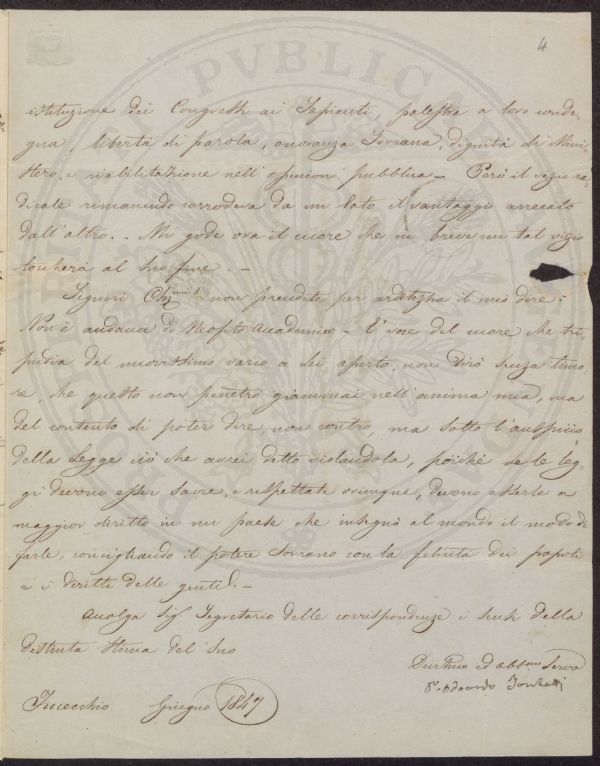 4
istituzione dei Congressi ai Sapienti, palestra a loro conde-
gna, libertà di parola, onoranza Sovrana, dignità di Mini-
stero, e riabilitazione nell'opinion pubblica – Però il vizio ra-
dicale rimanendo corrodeva da un lato il vantaggio arrecato
dall'altro. – Mi gode ora il cuore che in breve un tal vizio
toccherà al suo fine. –
Signori Ch.mi non prendete per arditezza il mio dire:
Non è audacia di Neofito Accademico – È voce del cuore che tri-
pudia del nuovissimo varco a Lei aperto, non dirò senza timo-
re, che questo non penetrò giammai nell'anima mia, ma
del contento di poter dire non contro, ma sotto l'auspicio
della Legge ciò che avrei detto violandola, poichè se le leg-
gi devono esser sacre, e rispettate ovunque, devono esserlo a
maggior diritto in un paese che insegnò al mondo il modo di
farle, concigliando il potere Sovrano con la felicità dei popoli
e i diritti delle genti. –
Accolga Sig. Segretario delle corrispondenze i sensi della
distinta stima del suo
Devmo ed obbmo Servo
Edoardo
Fucecchio Giugno 1847